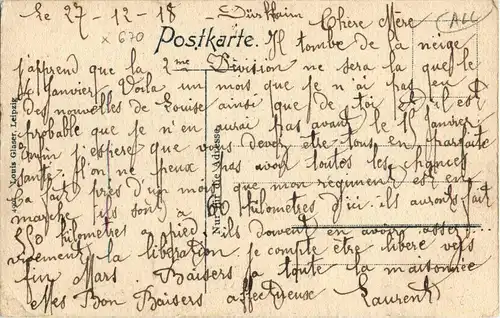 Le 27-12-18 Dürkheim Chere Mere (ALL
x 670
Postkarte. Il tombe de la neige
j'apprend que la 2me Division ne sera la que le
Janvier. Voila un mois que je n'ai
des nouvelles de Louise ainsi que de toi il est
probable que je n'en aurai pas avant le 15 Janvier
Enfin j'espere que vous devez être tous en parfaite
santé. Il on ne peux pas avoir toutes les chances
ca fait près d'un mois que mon regiment est en
marche ils sont a 60 kilometres d'ici. ils auront fait
kilometres a pied ils doivent en avoir assez
vivement la liberation je compte être libere vers
fin Mars. Baisers a toute la maisonnée
Mes Bon Baisers affectueux Laurent
Nur für die Adresse
Louis Glaser, Leipzig.